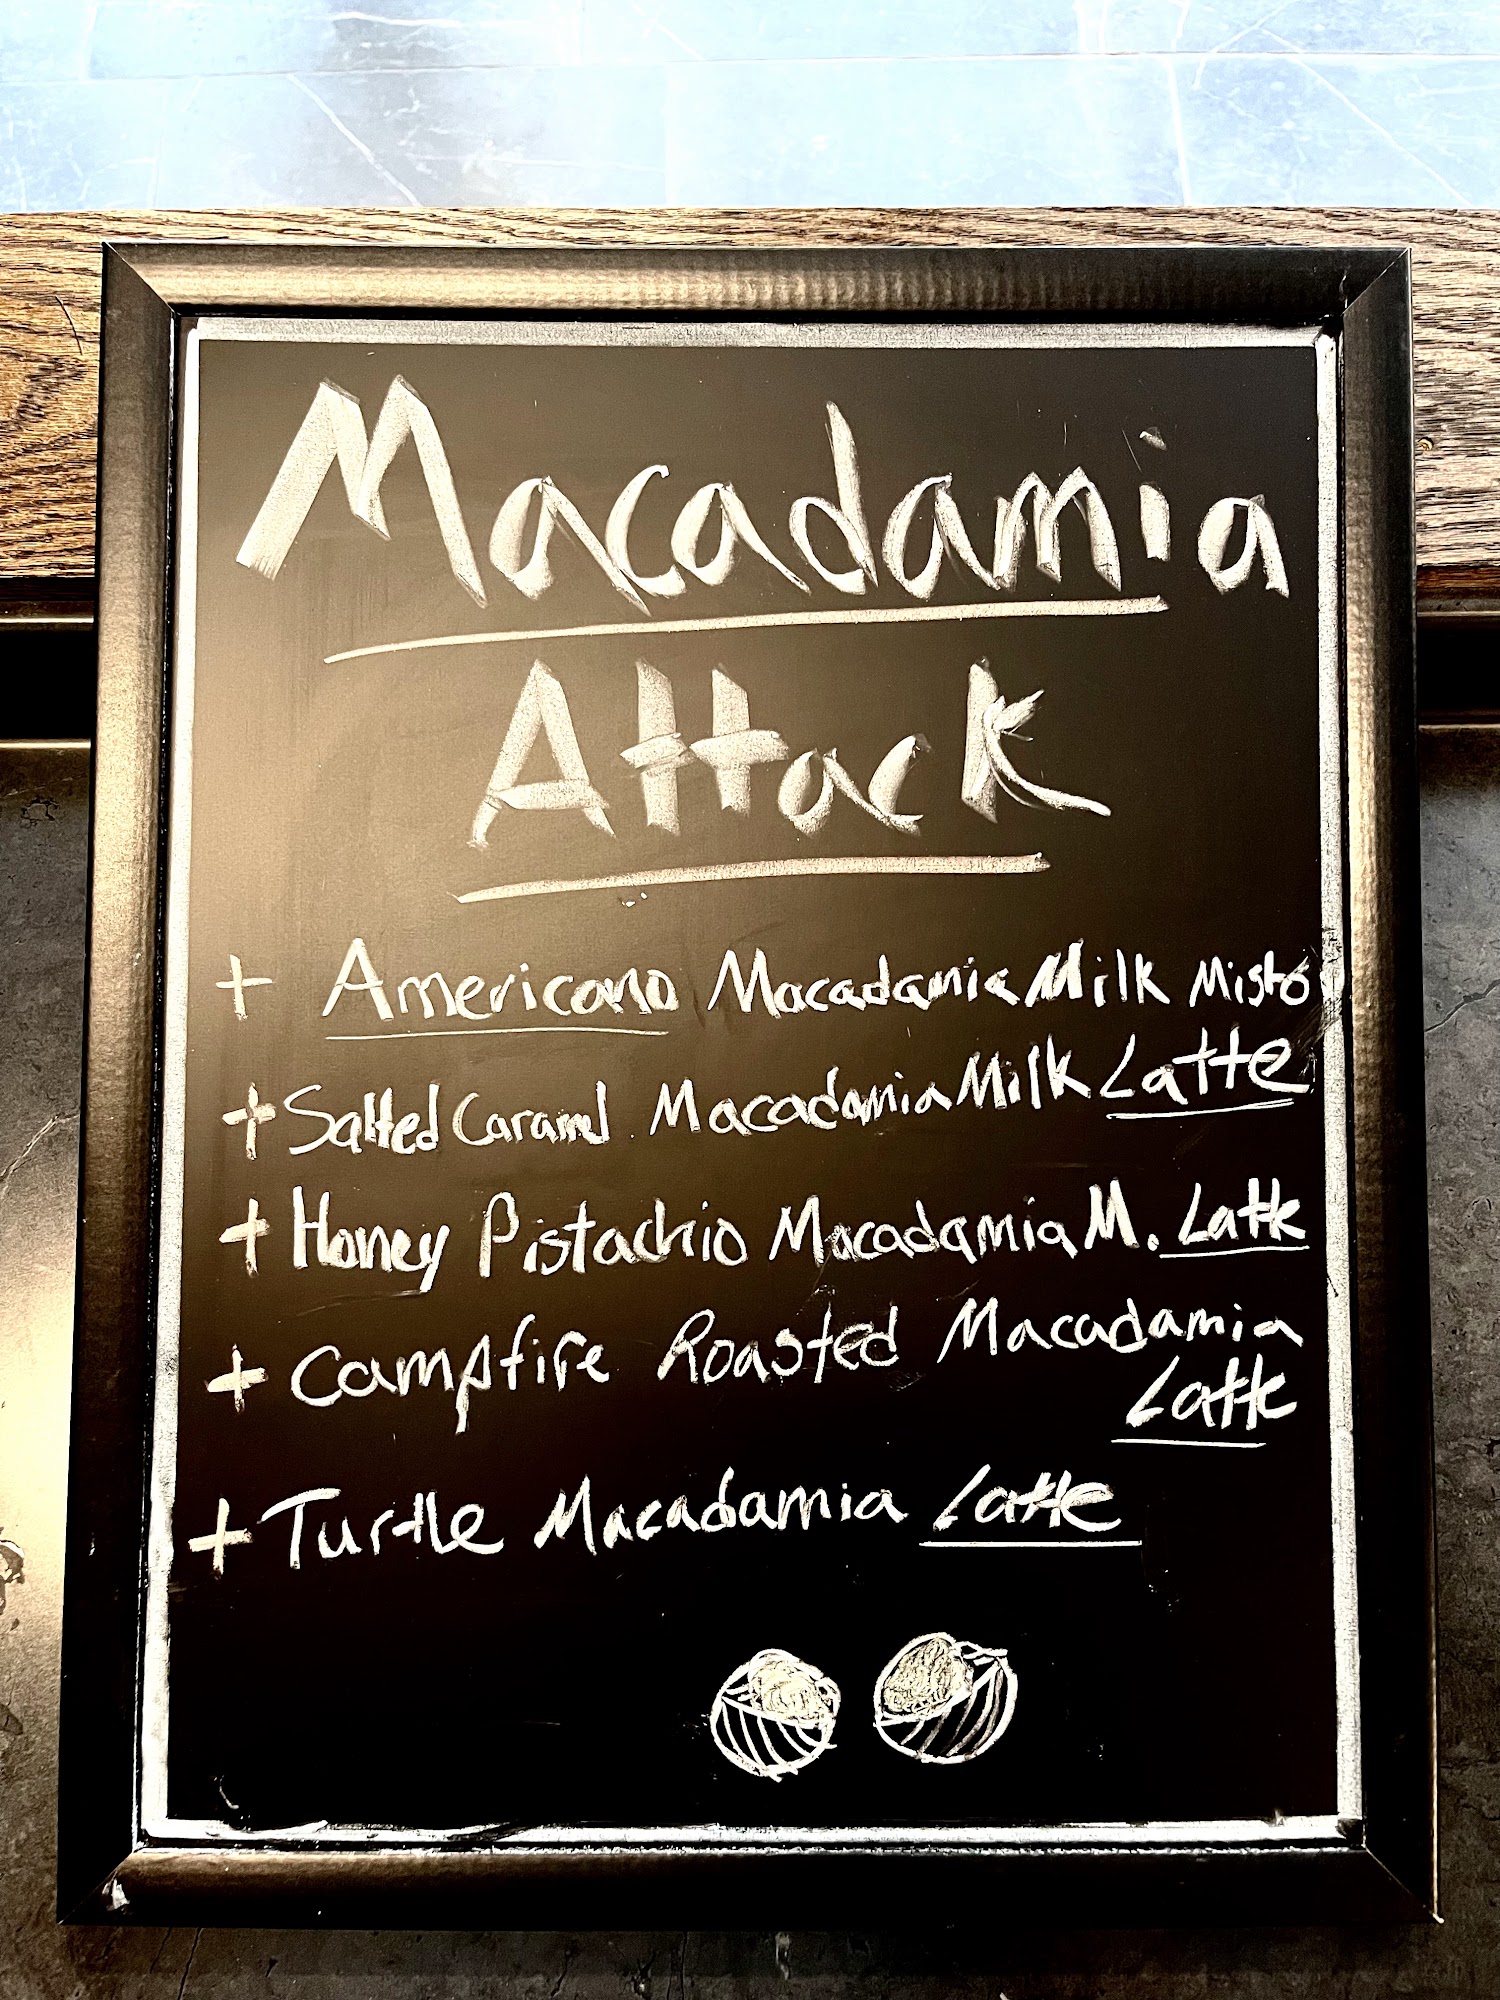 Macadamia
Attack
+ Americano Macadamia Milk Misto
+ Salted Caramel Macadamia Milk Latte
+ Honey Pistachio Macadamia M. Latte
+ Campfire Roasted Macadamia
Latte
+ Turtle Macadamia Latte